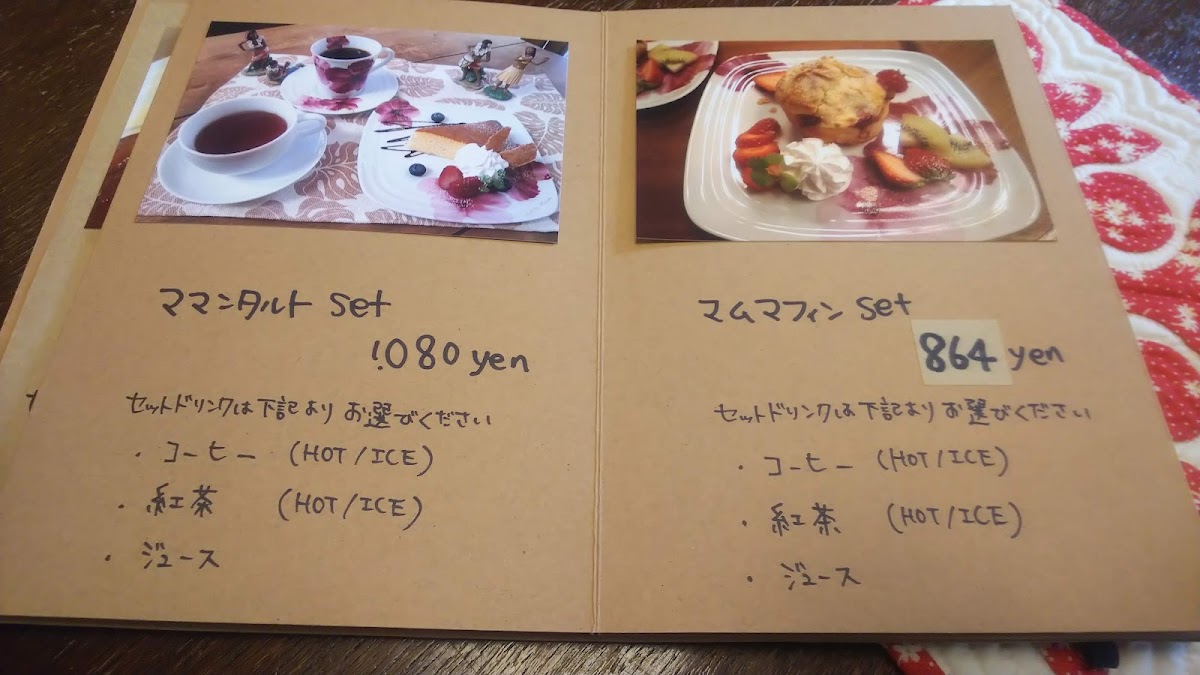 ママンタルト set
1.080 yen
セットドリンクは下記より お選びください
・コーヒー (HOT/ICE)
・紅茶 (HOT/ICE)
・ジュース
マムマフィン set
864 yen
セットドリンクは下記より お選びください
・コーヒー (HOT/ICE)
・紅茶 (HOT/ICE)
・ジュース